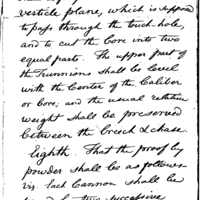 verticle plane, which is suppos
to pass through the touch-hole
and to cut the Core into two
equal parts. The upper part of
the Trunnions shall be level
with the Center of the Caliber
or Core, and the usual relative
weight shall be preserved
between the Breech & chase.
Eighth. That the proof by
powder shall be as follows-
viz. Each Cannon shall be
two successive